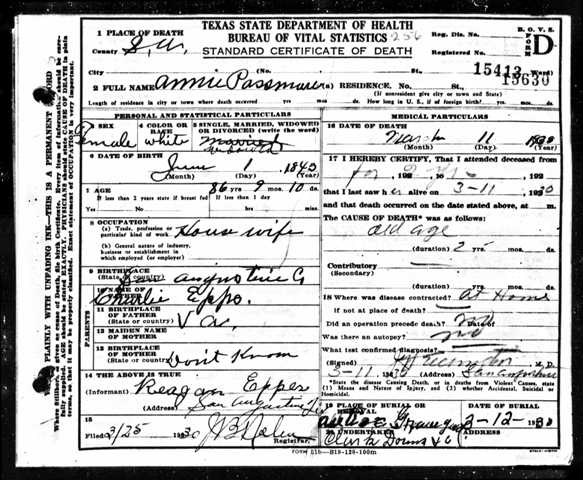 TEXAS STATE DEPARTMENT OF HEALTH
BUREAU OF VITAL STATISTICS 256
STANDARD CERTIFICATE OF DEATH
B. O. V. S. FORM D
1 PLACE OF DEATH
County S. A.
Reg. Dis. No.
Registered No.
City (No. St. 15413 Ward)
15630
2 FULL NAME Annie Passmore (a) RESIDENCE. No. St.
(If nonresident give city or town and State)
Length of residence in city or town where death occurred yrs. mos. ds. How long in U. S., if of foreign birth? yrs. mos. ds.
PERSONAL AND STATISTICAL PARTICULARS
3 SEX Female
4 COLOR OR RACE white
5 SINGLE, MARRIED, WIDOWED OR DIVORCED (write the word) married
6 DATE OF BIRTH
June 1 1843
(Month) (Day) (Year)
7 AGE 86 yrs. 9 mos. 10 ds.
If less than 2 years if breast fed Yes No If less than 1 day
8 OCCUPATION
(a) Trade, profession or particular kind of work House wife
(b) General nature of industry, business or establishment in which employed (or employer)
9 BIRTHPLACE
(State or country) San Augustine Co
PARENTS
10 NAME OF FATHER Charlie Epps.
11 BIRTHPLACE OF FATHER
(State or country) Va.
12 MAIDEN NAME OF MOTHER
13 BIRTHPLACE OF MOTHER
(State or country) Don't Know
14 THE ABOVE IS TRUE
(Informant) Reagan Epps
(Address) San Augustine Tx
15
Filed 3/25 1930
Registrar.
MEDICAL PARTICULARS
16 DATE OF DEATH
March 11 1930
(Month) (Day) (Year)
17 I HEREBY CERTIFY, That I attended deceased
192
that I last saw her alive on 3-11 1930
and that death occurred on the date stated above, at m.
The CAUSE OF DEATH* was as follows:
old age
(duration) 2 yrs. mos. ds.
Contributory
(Secondary)
(duration) yrs. mos. ds.
18 Where was disease contracted At Home
if not at place of death?
Did an operation precede death? no Date of
Was there an autopsy? no
What test confirmed diagnosis?
M. D.
3-11 1930 (Address) San Augustine
*State the disease Causing Death, or in deaths from Violent Causes, state (1) Means and Nature of Injury, and (2) whether Accidental, Suicidal or Homicidal.
19 PLACE OF BURIAL OR REMOVAL
Grave yard
DATE OF BURIAL
3-12-1930
20 UNDERTAKER
Clark Downs & Co
FORM 510-B19-129-100m